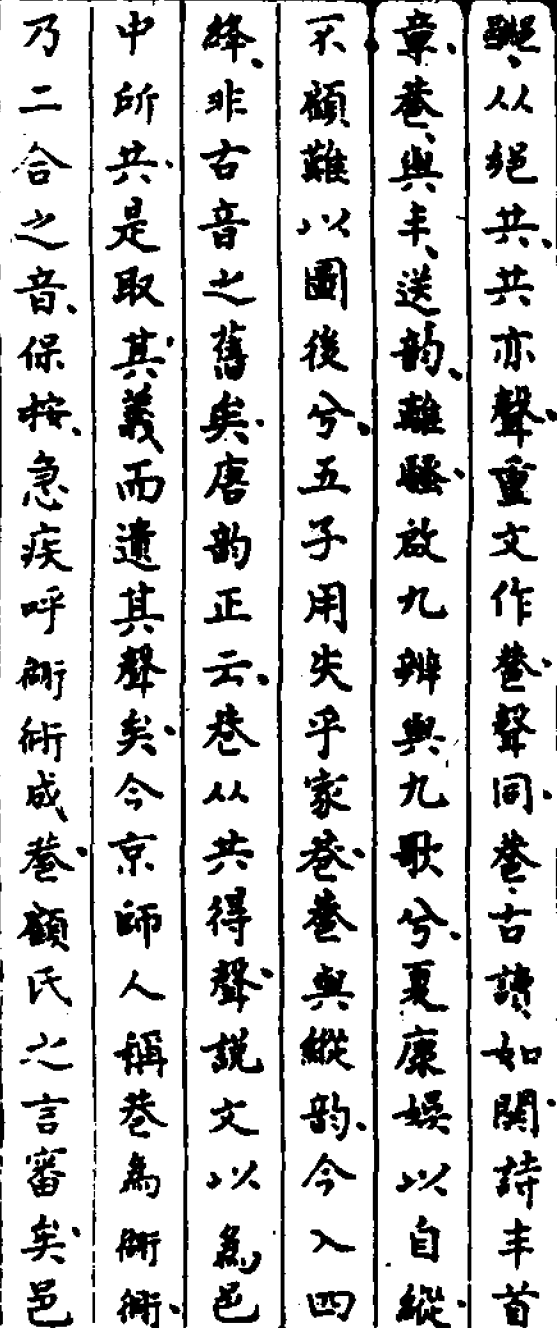 从𨛜共共亦聲重文作巷聲同巷古讀如鬨詩丰首
章巷與丰送韵離騷啟九辨與九歌兮夏康娛以自縱
不顧難以圖後兮五子用失乎家巷巷與縱韵今入四
絳非古音之舊矣唐韵正云巷从共得聲說文以為邑
中所共是取其義而遺其聲矣今京師人稱巷為衚衕
乃二合之音保按急疾呼衚衕成巷顧氏之言審矣邑